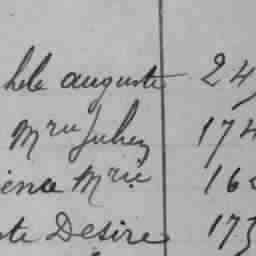 hele auguste 24
Mrie Julien 174
ence Mrie 16
ste Desire 173